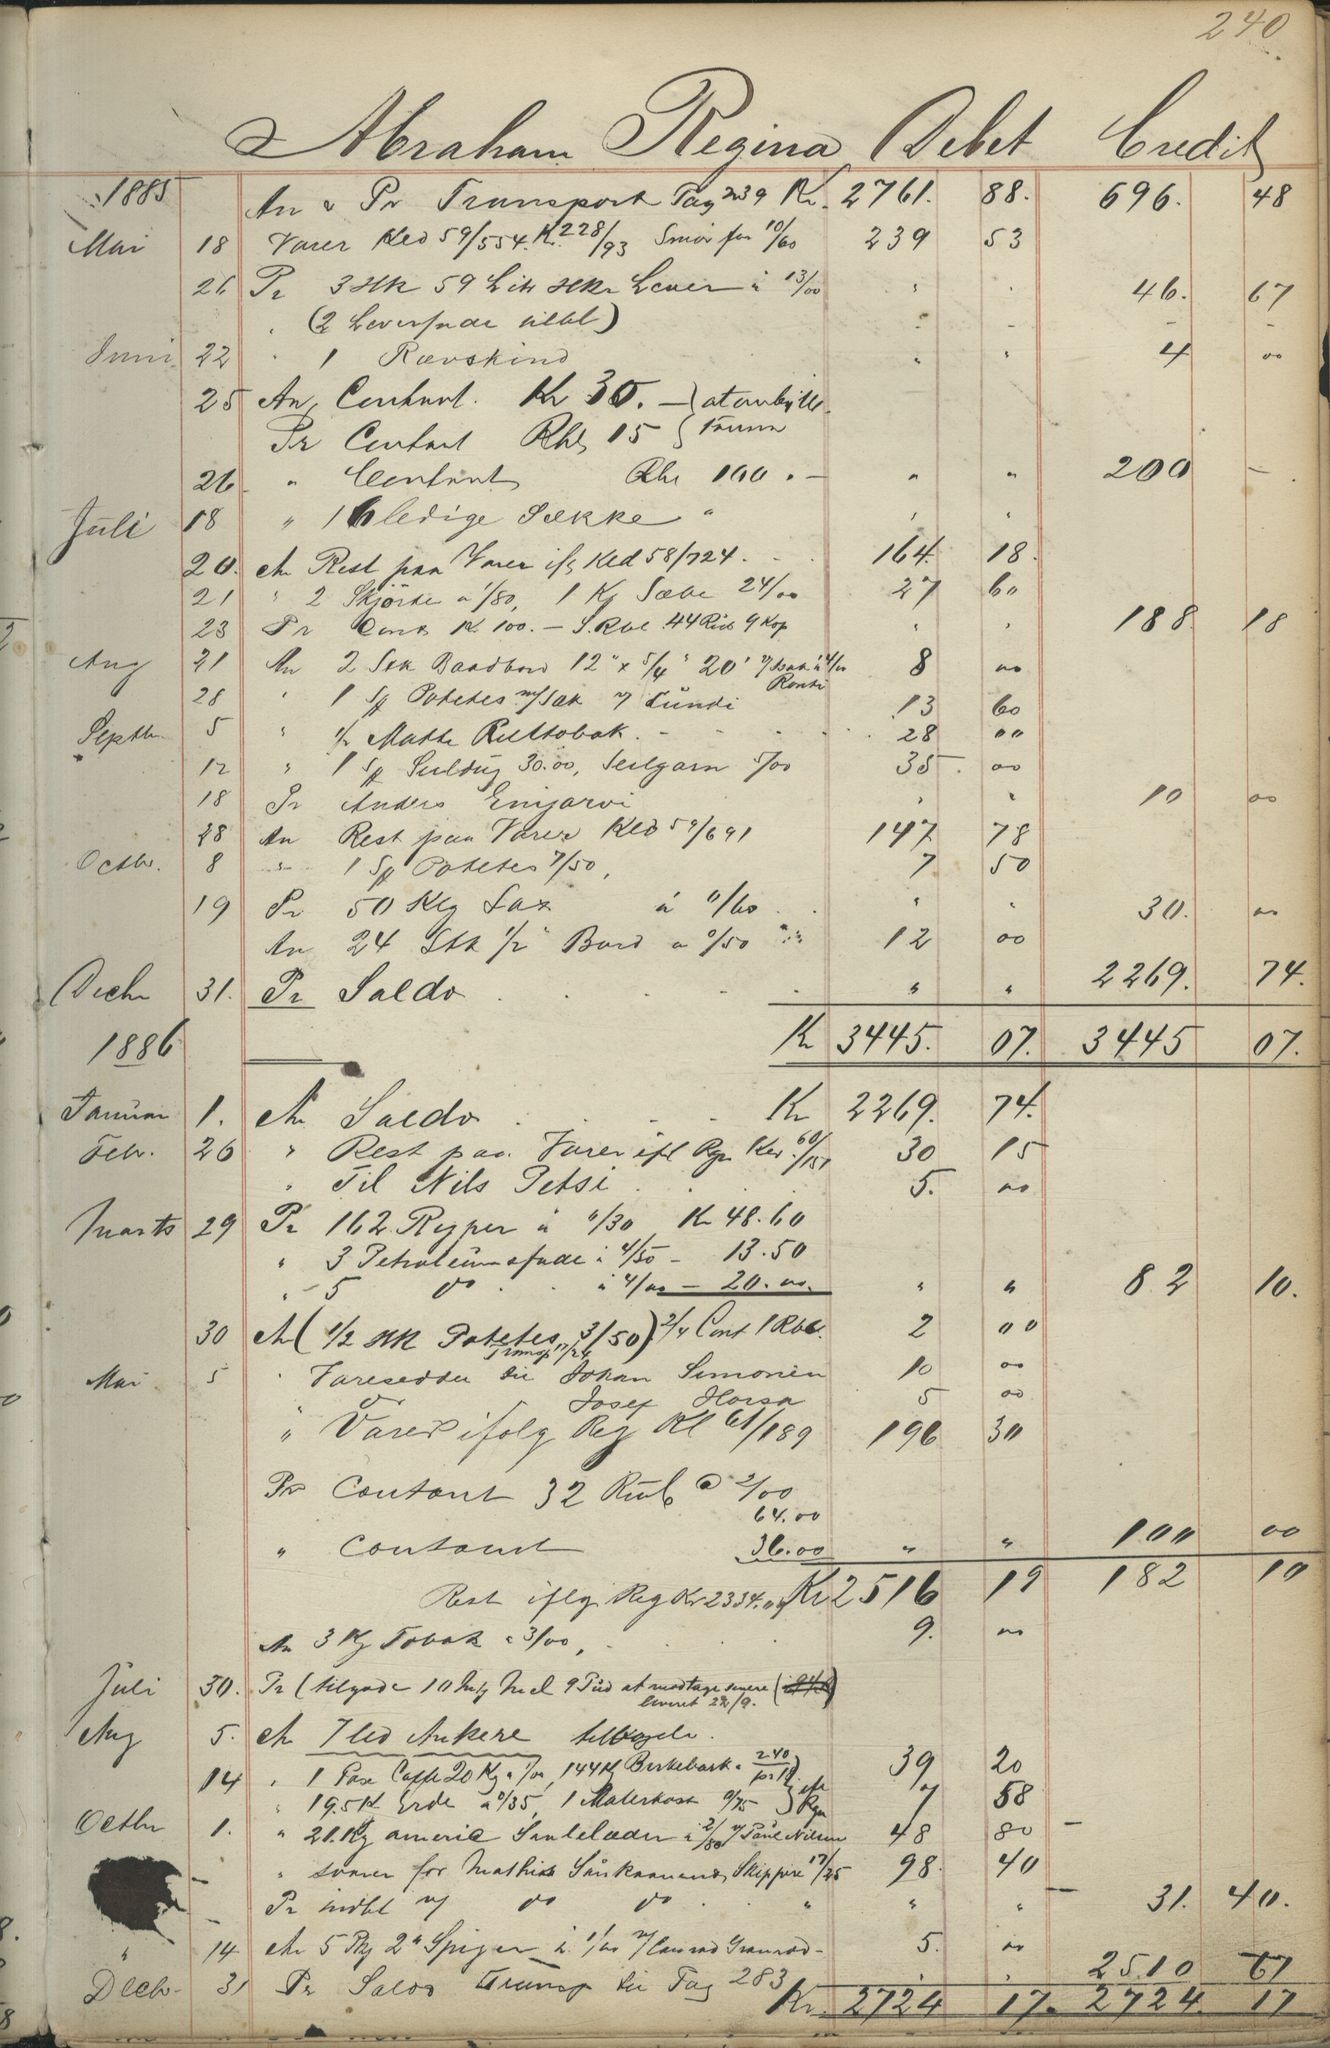 240
Abraham Regina Debet Credit
1885 An & Pr Transport Pag 239 Kr. 2761. 88. 696. 48
Mai 18 Varer Kled 59/554. Kr. 228/93 Smør for 10/60 239 53
26 Pr 3 Hk 59 Litr Hkr Lever à 13/00 " . 46. 67
. (2 Leverfade tilbl) - - - -
Juni 22 " 1 Rævskind " " 4 00
25 An Contant. Kr 30. —
Pr Contant Rbl 15
26 " Contant Rbl 100. — " " 200 -
Juli 18 " 16 ledige Sække " " "
20. An Rest paa Varer ifl Kled 58/724. - . 164. 18.
21 " 2 Skjörte a 1/80, 1 Kg Sæbe 24/00 27 60
23 Pr Cont Kr 100. — S. Rbl 44 Rub 9 Kop " " 188. 18
Aug 21 An 2 Stk Baadbord 12" x 5/4" 20' 8 00
28 " 1 Sk Potetes m/Sæk 13 60
Septbr 5 " 1/2 Matte Rultobak. - - - - 28 00
12 " 1 Seildug 30.00, Seilgarn 5/00 35. 00
18 Pr Anders Enijarvi " " 10 00
28 An Rest paa Varer Kled 59/691 147. 78
Octbr. 8 " 1 Sk Potetes 7/50, 7 50
19 Pr 50 Klg Lax à 0/60 . . " " 30. 00
An 24 Stk 1/2" Bord a 0/50 12 00
Decbr 31. Pr Saldo . . . - - . " " 2269. 74.
Kr 3445. 07. 3445 07.
1886
Januar 1. An Saldo . . . - Kr 2269. 74.
Febr. 26 " Rest paa Varer ifl Rgn Kled 60/151 30 15
" Til Nils Petsi . . . . 5. 00
Marts 29 Pr 162 Ryper à 0/30 Kr 48.60
" 3 Petroleumsfade à 4/50 - 13.50
" 5 do . à 4/00 — 20.00. " " 82 10.
30 An (1/2 HK Potetes 3/50) 2/4 Cont 1 Rbl. 2 00
Transp 17/24
Mai 5 " Varesedder til Johan Simonen 10 00
" do Josef Horsa 5 00
" Varer ifolg Reg Kl 61/189 196 30
Pr Contant 32 Rub @ 2/00
64.00
" Contant 36.00 " " 100 00
Rest iflg Reg Kr 2334.09 Kr 2516 19 182 10
An 3 Kg Tobak à 3/00, . . . . 9. 00
Juli 30. Pr (tilgode 10 Mel 9 Pud at modtage senere
leveret 22/9.
Aug 5. An 7 Ankere
14 " 1 Pose Caffe 20 Kg, 144 Kg Birkebark à 240 39 20
" 19.5 K Erde a 0/35, 1 Malerkost 0/75 7 58
Octbr 1. " 21. Kg americ Saalelæder à 2/80 Paul Nilsen 48 80 -
- " svarer for Mathis Skippere 17/25 98. 40
- Pr indbl v/ do do . " " " - 31. 40.
" 14 An 5 Pkg 2" Spiger à 1/00 v/ Conrad Granrod - 5. 00
Decbr- 31 Pr Saldo Transp til Pag 283 . . 2510 67
Kr. 2724 17. 2724. 17